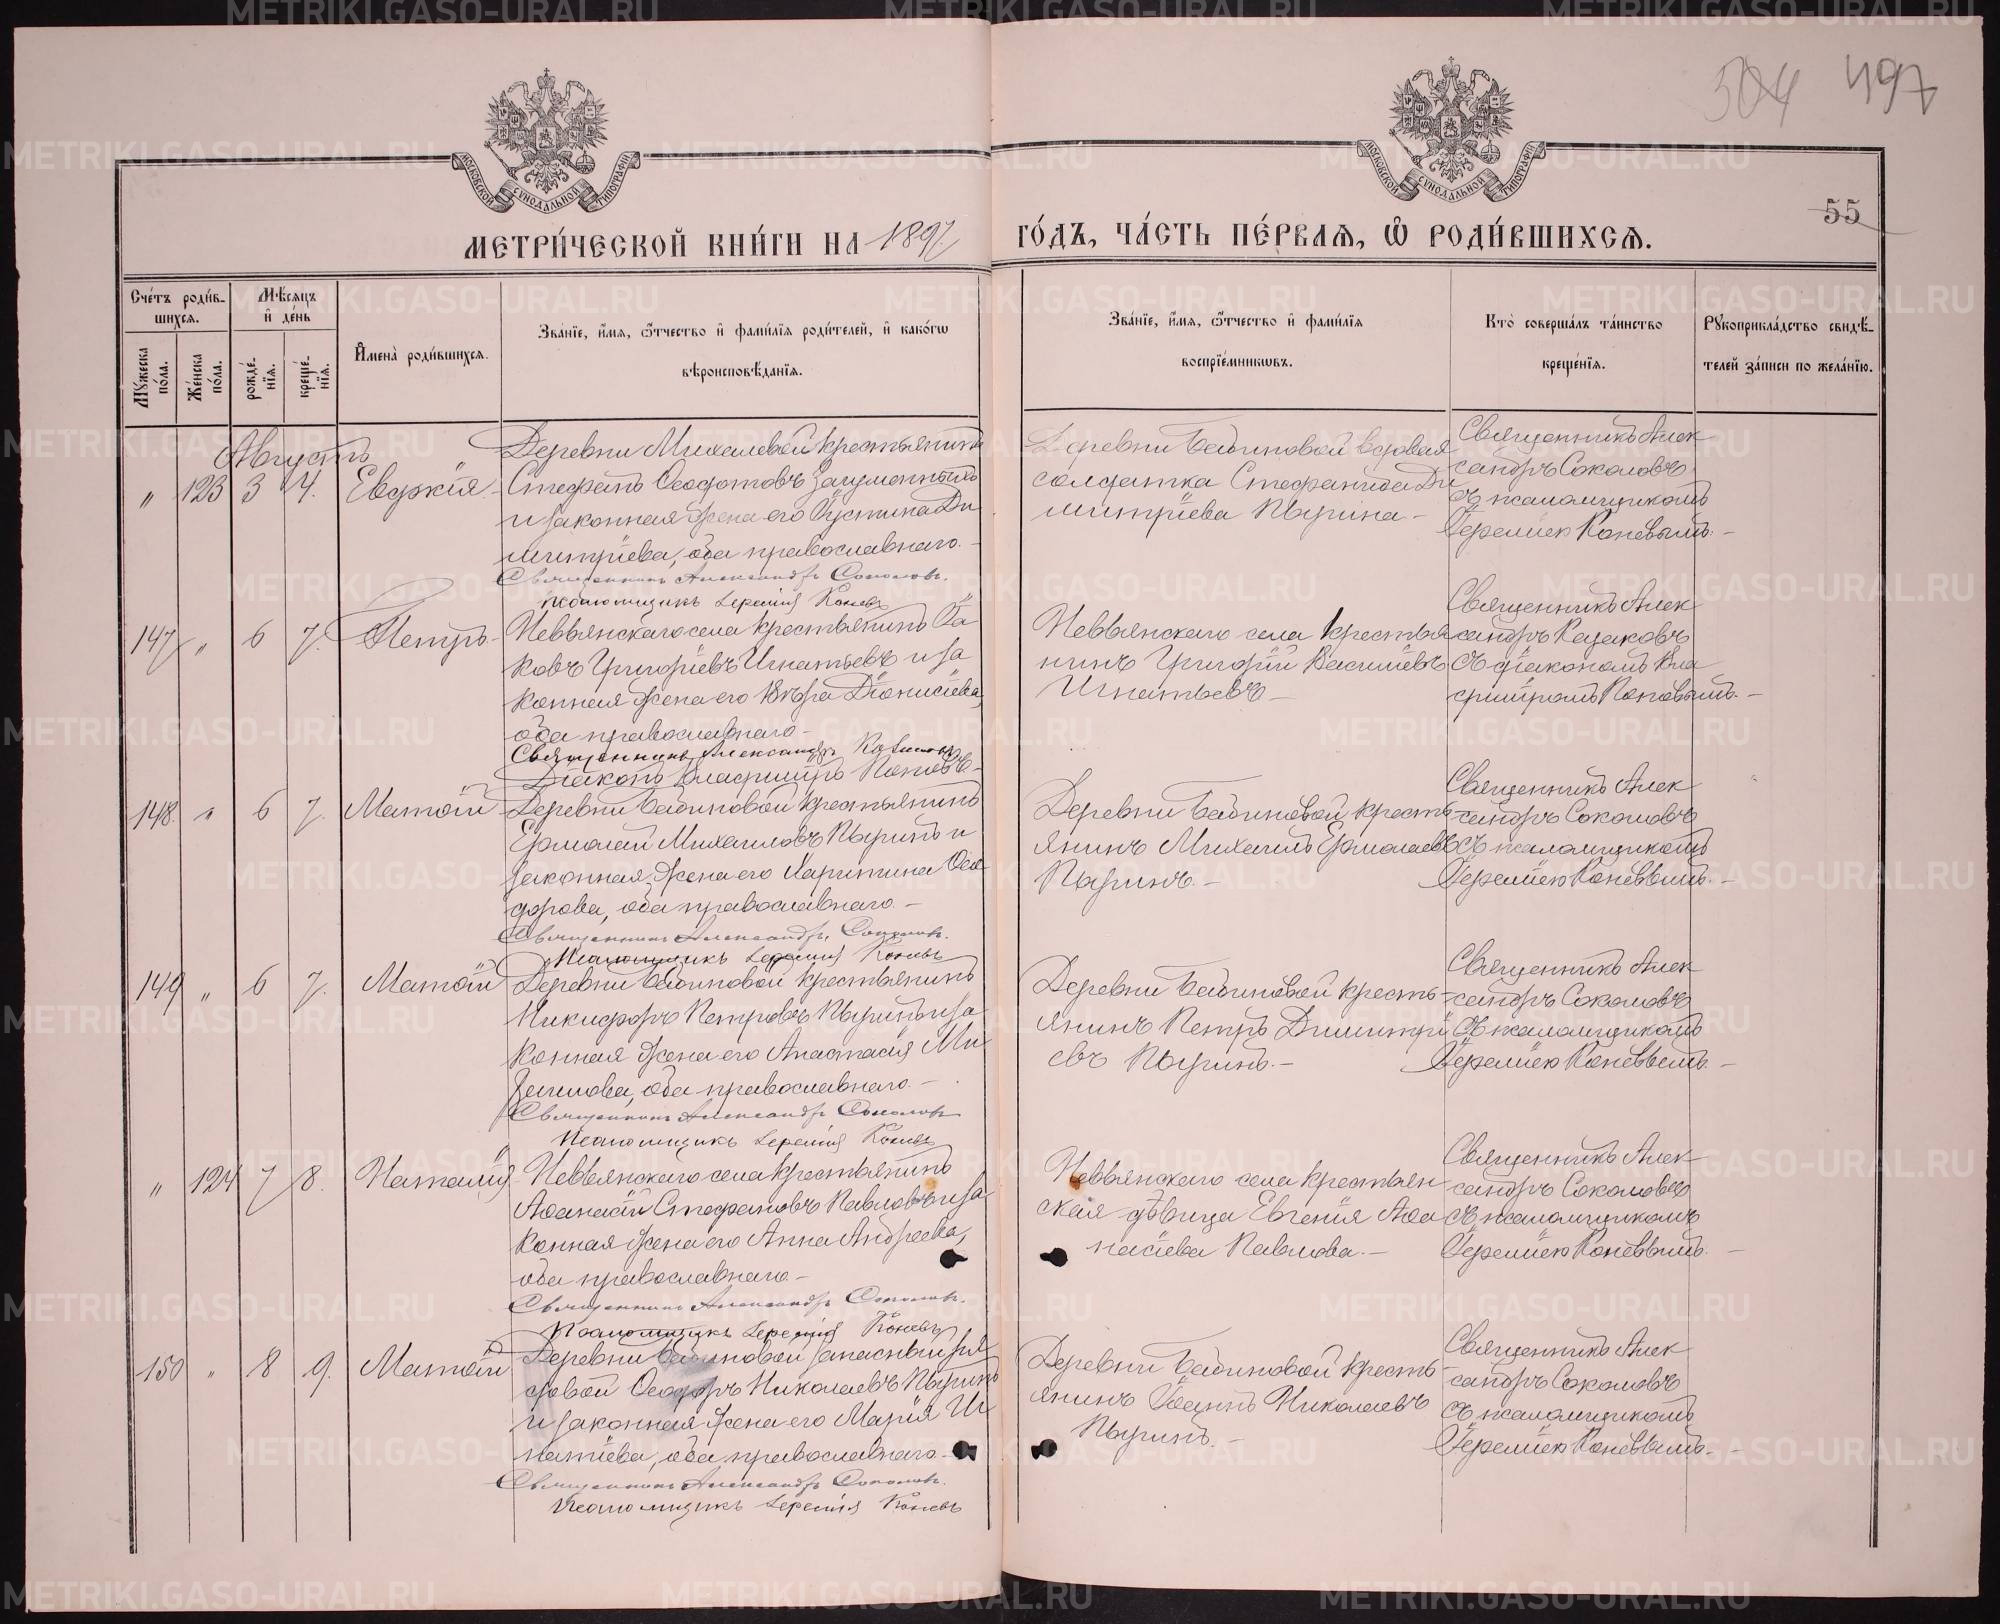 504 497
МОСКОВСКОЙ СѴНОДАЛЬНОЙ ТИПОГРАФІИ
МОСКОВСКОЙ СѴНОДАЛЬНОЙ ТИПОГРАФІИ
55
МЕТРИ́ЧЕСКОЙ КНИ́ГИ НА 1897
ГО́ДЪ, ЧА́СТЬ ПЕ́РВАЯ, Ѡ РОДИ́ВШИХСЯ.
Сче́тъ роди́в-
шихся.
Мꙋ́жеска по́ла.
Же́нска по́ла.
Мѣ́сяцъ
и де́нь
рожде́-
нїя.
креще́-
нїя.
Имена̀ роди́вшихся.
Зва́нїе, и́мя, ѻ҆́тчество и фами́лїя роди́телей, и како́гѡ
вѣроисповѣ́данїя.
Зва́нїе, и́мя, ѻ҆́тчество и фами́лїя
воспрїе́мникѡвъ.
Кто̀ соверша́лъ та́инство
креще́нїя.
Рꙋкоприкла́дство свидѣ́-
телей за́писи по жела́нїю.
Августъ
" 123 3 4. Евдокія.
Деревни Михалевой крестьянинъ
Стефанъ Ѳеодотовъ
и законная жена его Іустина Ди
митріева, оба православнаго.
Священникъ Александръ Соколовъ.
Псаломщикъ Іеремія Коневъ
Деревни Бабиновой вдовая
солдатка Стефанида Ди
митріева Пырина –
Священникъ Алек
сандръ Соколовъ
съ псаломщикомъ
Іереміею Коневымъ. –
147 " 6 7. Петръ
Невьянскаго села крестьянинъ Іа
ковъ Григоріевъ Игнатьевъ и за
конная жена его Вѣра Діонисіева,
оба православнаго –
Священникъ Александръ Казаковъ
Діаконъ Владиміръ Поповъ –
Невьянскаго села крестья
нинъ Григорій Василіевъ
Игнатьевъ –
Священникъ Алек
сандръ Казаковъ
съ діакономъ Вла
диміромъ Поповымъ. –
148. " 6 7. Матѳій
Деревни Бабиновой крестьянинъ
Ермолай Михаиловъ Пыринъ и
законная жена его Харитина Ѳео
дорова, оба православнаго –
Священникъ Александръ Соколовъ.
Псаломщикъ Іеремія Коневъ
Деревни Бабиновой кресть
янинъ Михаилъ Ермолаевъ
Пыринъ. –
Священникъ Алек
сандръ Соколовъ
съ псаломщикомъ
Іереміею Коневымъ. –
149 " 6 7. Матѳій
Деревни Бабиновой крестьянинъ
Никифоръ Петровъ Пыринъ и за
конная жена его Анастасія Ми
хаилова, оба православнаго. –
Священникъ Александръ Соколовъ
Псаломщикъ Іеремія Коневъ
Деревни Бабиновой кресть-
янинъ Петръ Димитрі
евъ Пыринъ. –
Священникъ Алек
сандръ Соколовъ
съ псаломщикомъ
Іереміею Коневымъ. –
" 124 7 8. Наталія
Невьянскаго села крестьянинъ
Аѳанасій Стефановъ Павловъ и за
конная жена его Анна Андреева,
оба православнаго –
Священникъ Александръ Соколовъ.
Псаломщикъ Іеремія Коневъ
Невьянскаго села крестьян
ская дѣвица Евгенія Аѳа
насіева Павлова. –
Священникъ Алек
сандръ Соколовъ
съ псаломщикомъ
Іереміею Коневымъ. –
150 " 8 9. Матѳій
Деревни Бабиновой запасный ря
довой Ѳеодоръ Николаевъ Пыринъ
и законная жена его Марія Иг
натіева, оба православнаго –
Священникъ Александръ Соколовъ.
Псаломщикъ Іеремія Коневъ
Деревни Бабиновой кресть-
янинъ Іоаннъ Николаевъ
Пыринъ. –
Священникъ Алек
сандръ Соколовъ
съ псаломщикомъ
Іереміею Коневымъ. –
METRIKI.GASO-URAL.RU